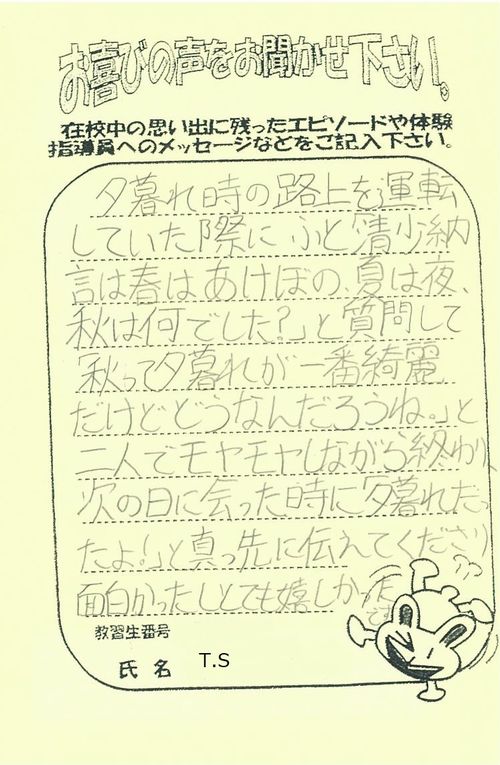 お喜びの声をお聞かせ下さい。
在校中の思い出に残ったエピソードや体験
指導員へのメッセージなどをご記入下さい。
夕暮れ時の路上を運転
していた際に、ふと「清少納
言は春はあけぼの、夏は夜、
秋は何でした?」と質問して
「秋って夕暮れが一番綺麗
だけどどうなんだろうね。」と
二人でモヤモヤしながら終わり、
次の日に会った時に「夕暮れだっ
たよ!」と真っ先に伝えてくださり
面白かったしとても嬉しかった
です
教習生番号
氏名 T.S